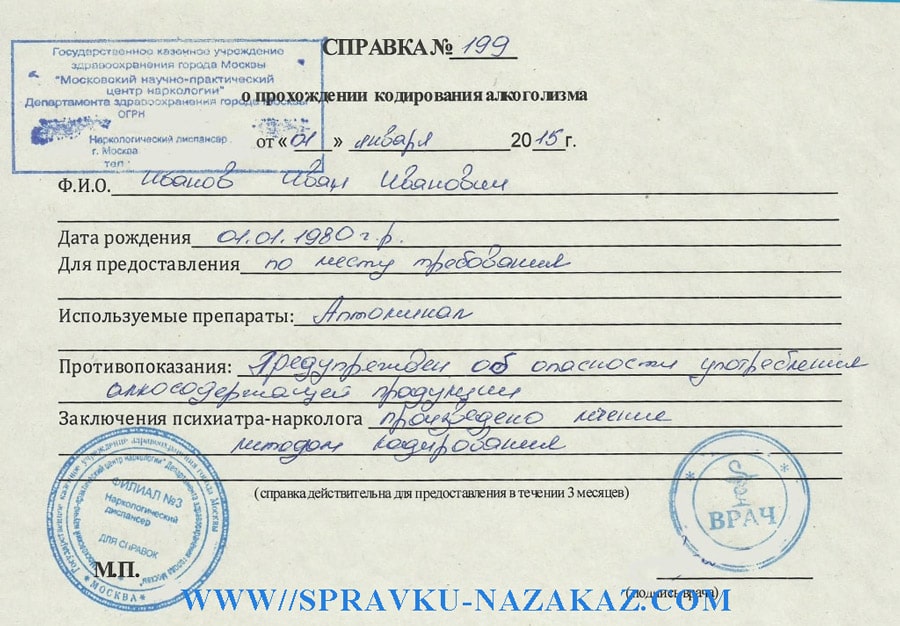 Государственное казенное учреждение
здравоохранения города Москвы
"Московский научно-практический
центр наркологии"
Департамента здравоохранения города Москвы
ОГРН
Наркологический диспансер
г. Москва
тел.:
СПРАВКА № 199
о прохождении кодирования алкоголизма
от «01» января 2015г.
Ф.И.О. Иванов Иван Иванович
Дата рождения 01.01.1980 г.р.
Для предоставления по месту требования
Используемые препараты: Алтоминал
Противопоказания: Предупрежден об опасности употребления
алкосодержащей продукции
Заключения психиатра-нарколога произведено лечение
методом кодирования
(справка действительна для предоставления в течении 3 месяцев)
Государственное казенное учреждение здравоохранения города Москвы
"Московский научно-практический центр наркологии" Департамента здравоохранения города Москвы"
ФИЛИАЛ №3
Наркологический
диспансер
ДЛЯ СПРАВОК
* МОСКВА *
М.П.
ВРАЧ
(подпись врача)
WWW//SPRAVKU-NAZAKAZ.COM